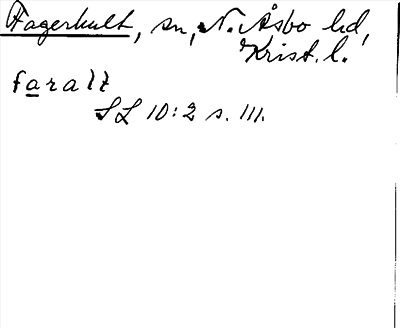 Fagerhult, sn, N. Åsbo hd,
Krist. l.
faralt
SL 10:2 s. 111.